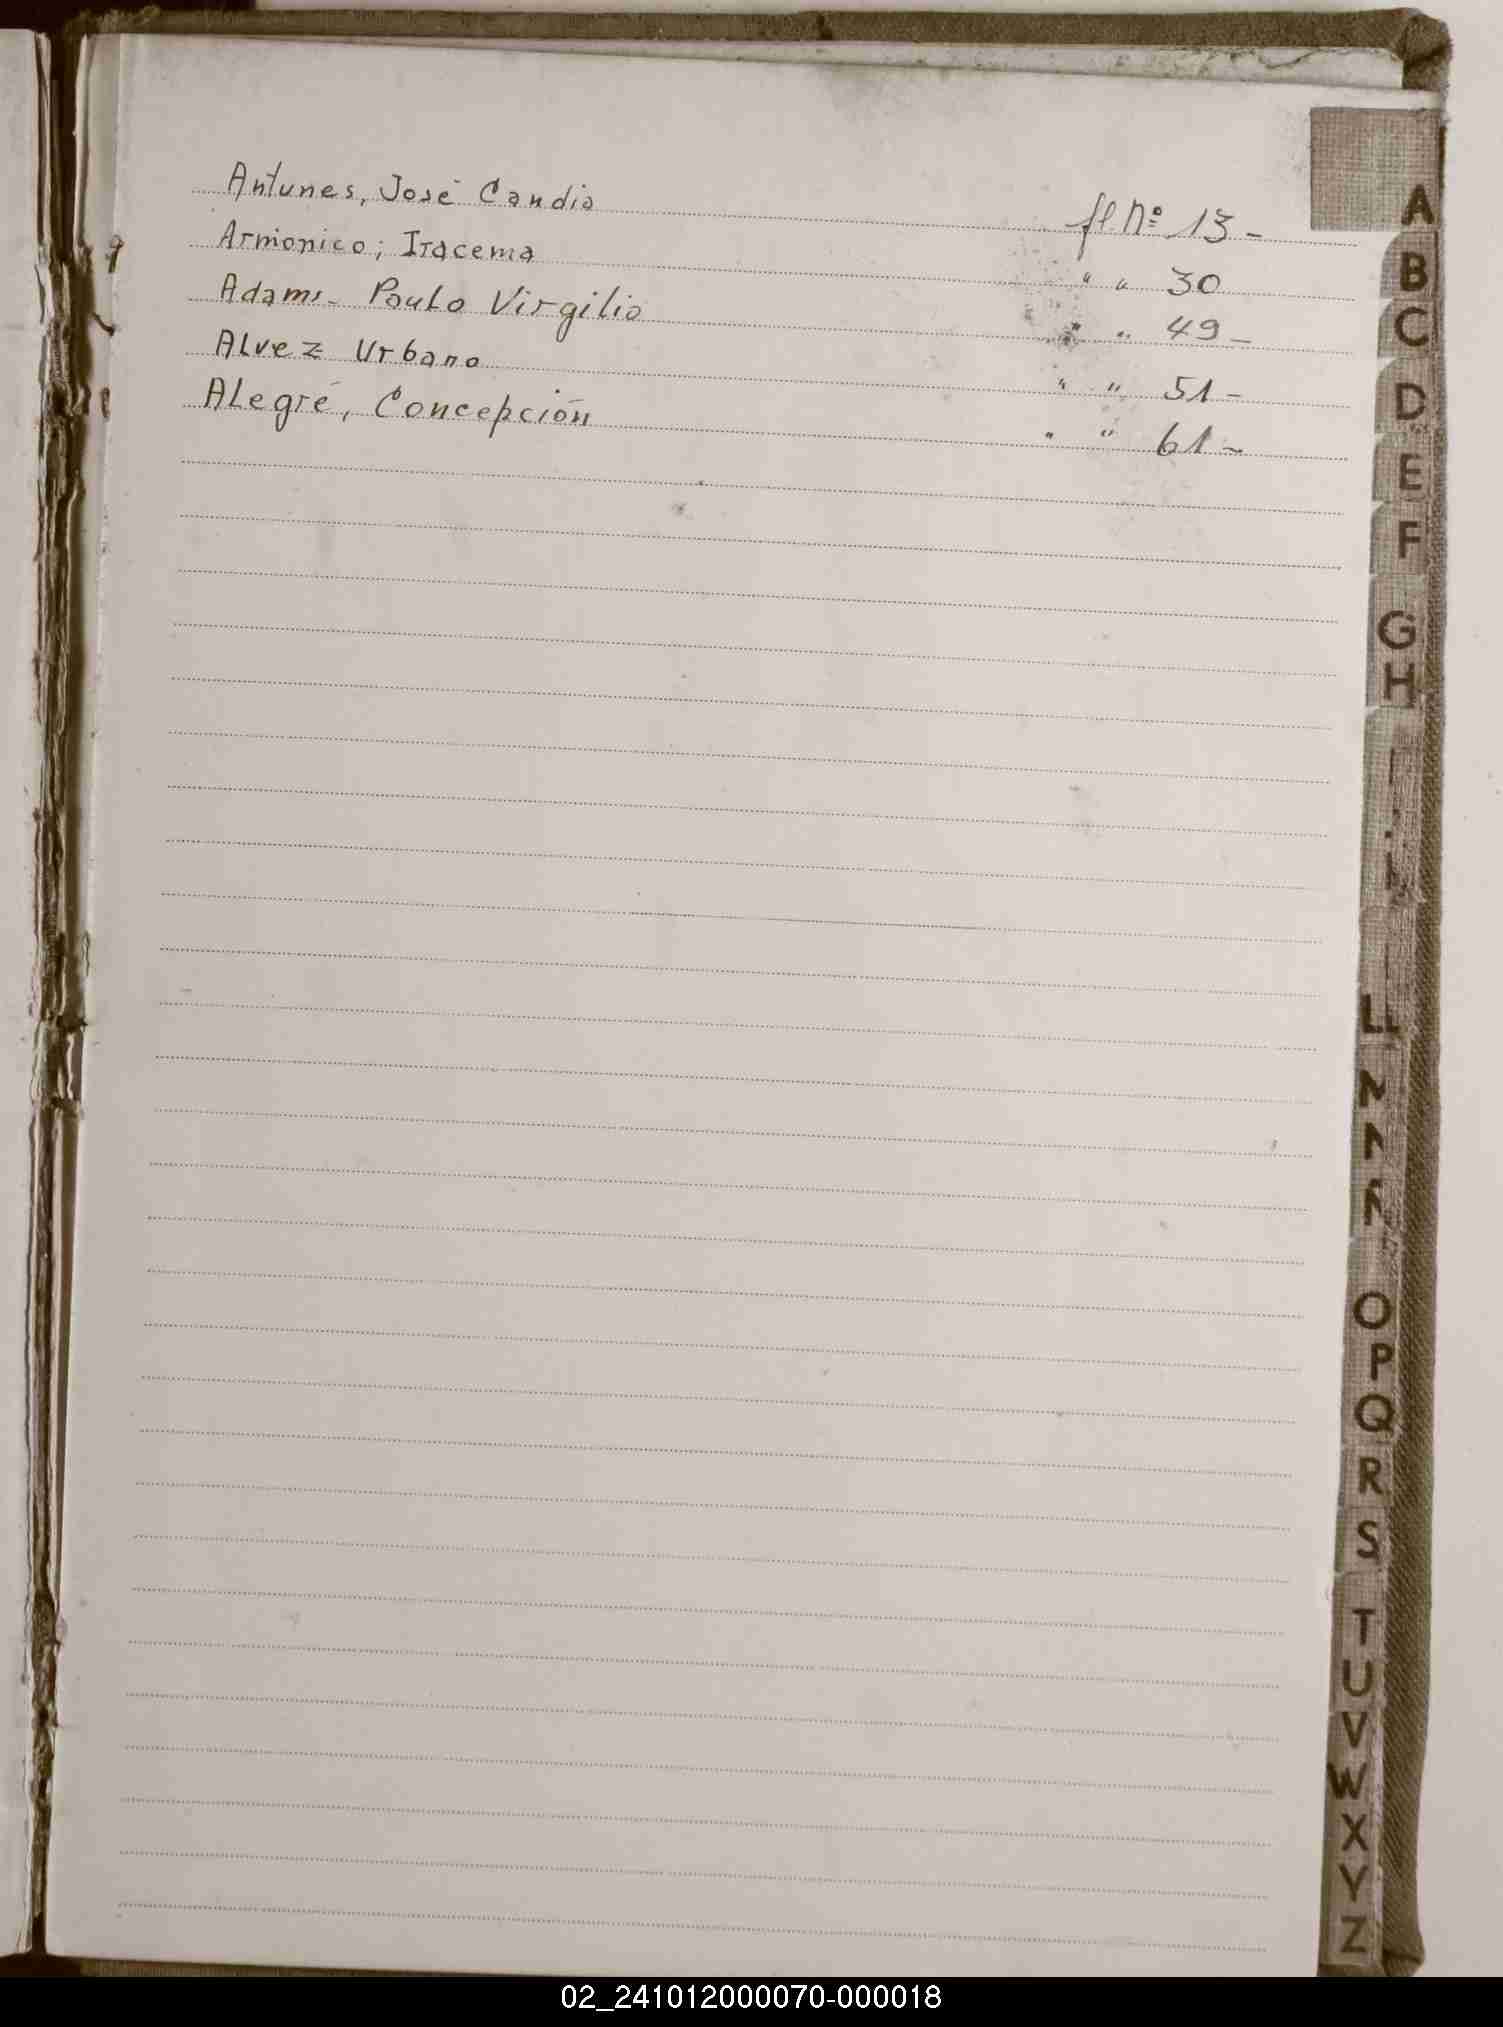 Antunes, José Candia fl. Nº 13 -
Armonico; Iracema " " 30
Adams - Paulo Virgilio " " 49 -
Alvez Urbano " " 51 -
Alegre, Concepción " " 61 -
A
B
C
D
E
F
G
H
L
N
O
P
Q
R
S
T
U
V
W
X
Y
Z
02_241012000070-000018